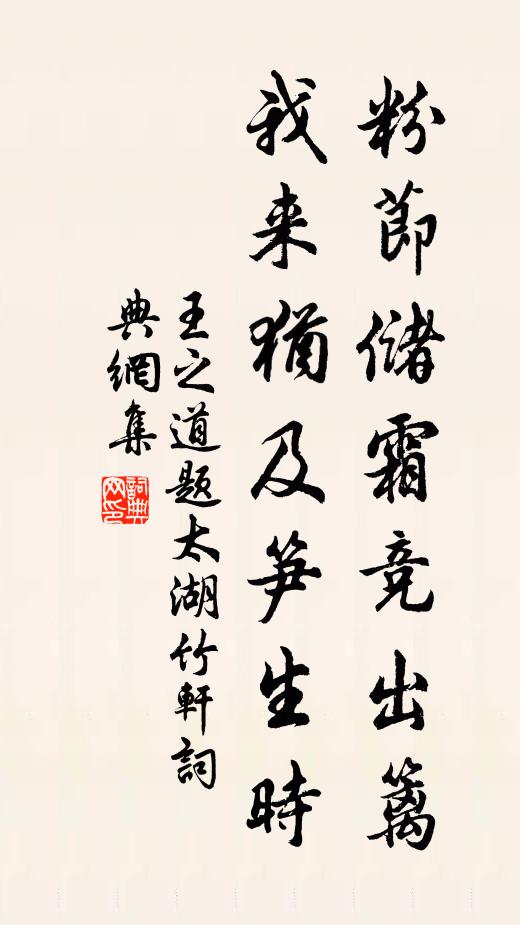 粉節儲霜竞出篱
我来猶及笋生時
王之道題太湖竹軒詞
典網集
詞典
网印